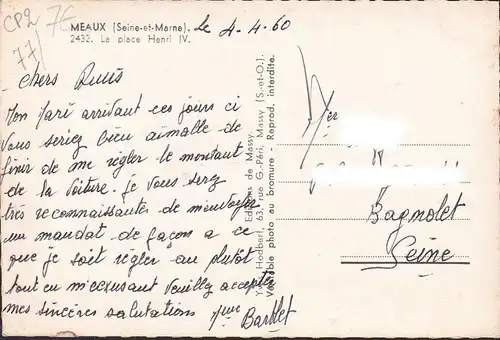 CP2
76
77/
MEAUX (Seine-et-Marne).
2432. La place Henri IV.
Le 4-4.60
chers Amis
Mon Mari arrivant ces jours ci
vous seriez bien aimable de
finir de me régler le montant
de la voiture. je vous serez
très reconnaissantes de m'envoyer
un mandat de façon a ce
que je soit régler au plutôt
tout en m'excusant veuillez accepter
mes sincères salutations Mme
Barblet
Editions de Massy
Hodbert, 63, rue G.-Péri, Massy (S.-et-O.).
Véritable photo au bromure - Reprod. interdite.
Mer
Bagnolet
Seine